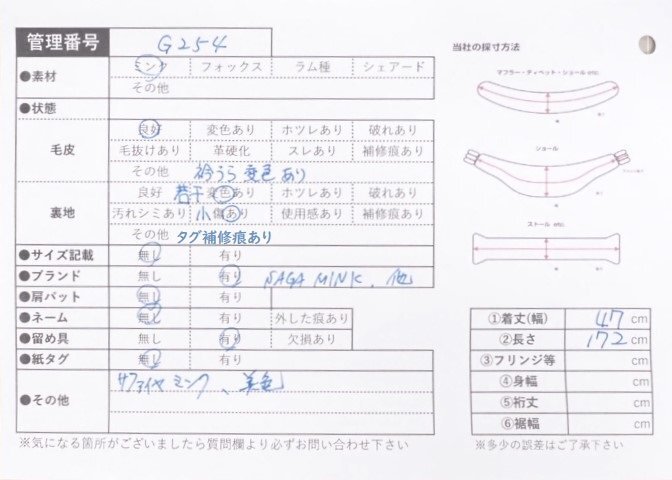 管理番号 G254
当社の採寸方法
●素材 ミンク フォックス ラム種 シェアード
その他
マフラー・ティペット・ショール etc.
●状態
毛皮 良好 変色あり ホツレあり 破れあり
毛抜けあり 革硬化 スレあり 補修痕あり
その他 衿うら変色あり
ショール
裏地 良好 若干変色あり ホツレあり 破れあり
汚れシミあり 小傷あり 使用感あり 補修痕あり
その他 タグ補修痕あり
ストール etc.
●サイズ記載 無し 有り
●ブランド 無し 有り SAGA MINK、他
●肩パット 無し 有り
●ネーム 無し 有り 外した痕あり
●留め具 無し 有り 欠損あり
●紙タグ 無し 有り
●その他 サファイヤミンク、美色
①着丈(幅) 47 cm
②長さ 172 cm
③フリンジ等 cm
④身幅 cm
⑤裄丈 cm
⑥裾幅 cm
※気になる箇所がございましたら質問欄より必ずお問い合わせ下さい
※多少の誤差はご了承下さい